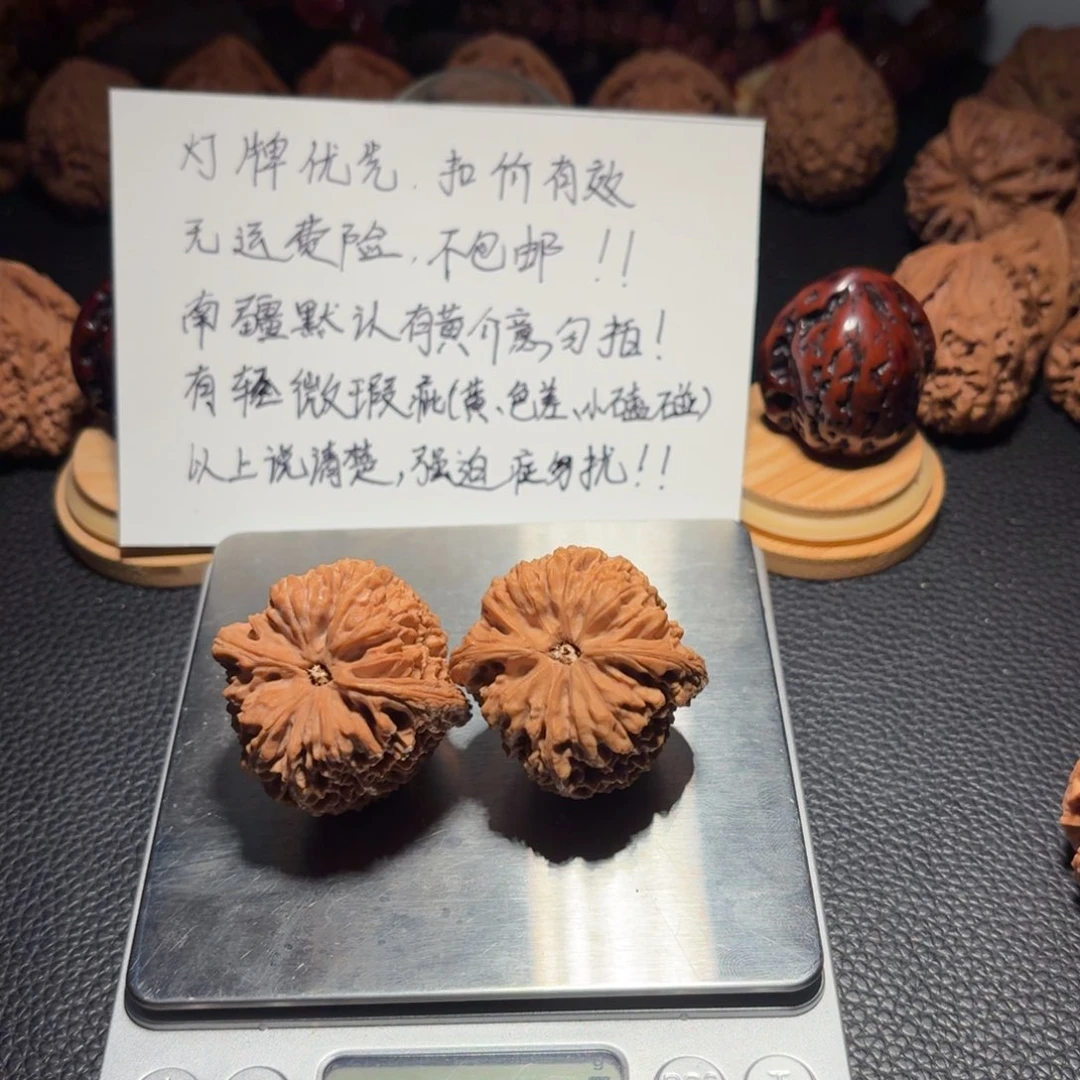 灯牌优先.扣价有效
无运费险,不包邮!!
南疆默认有黄介意勿拍!
有轻微瑕疵(黄、色差、小磕碰)
以上说清楚,强迫症勿扰!!
g